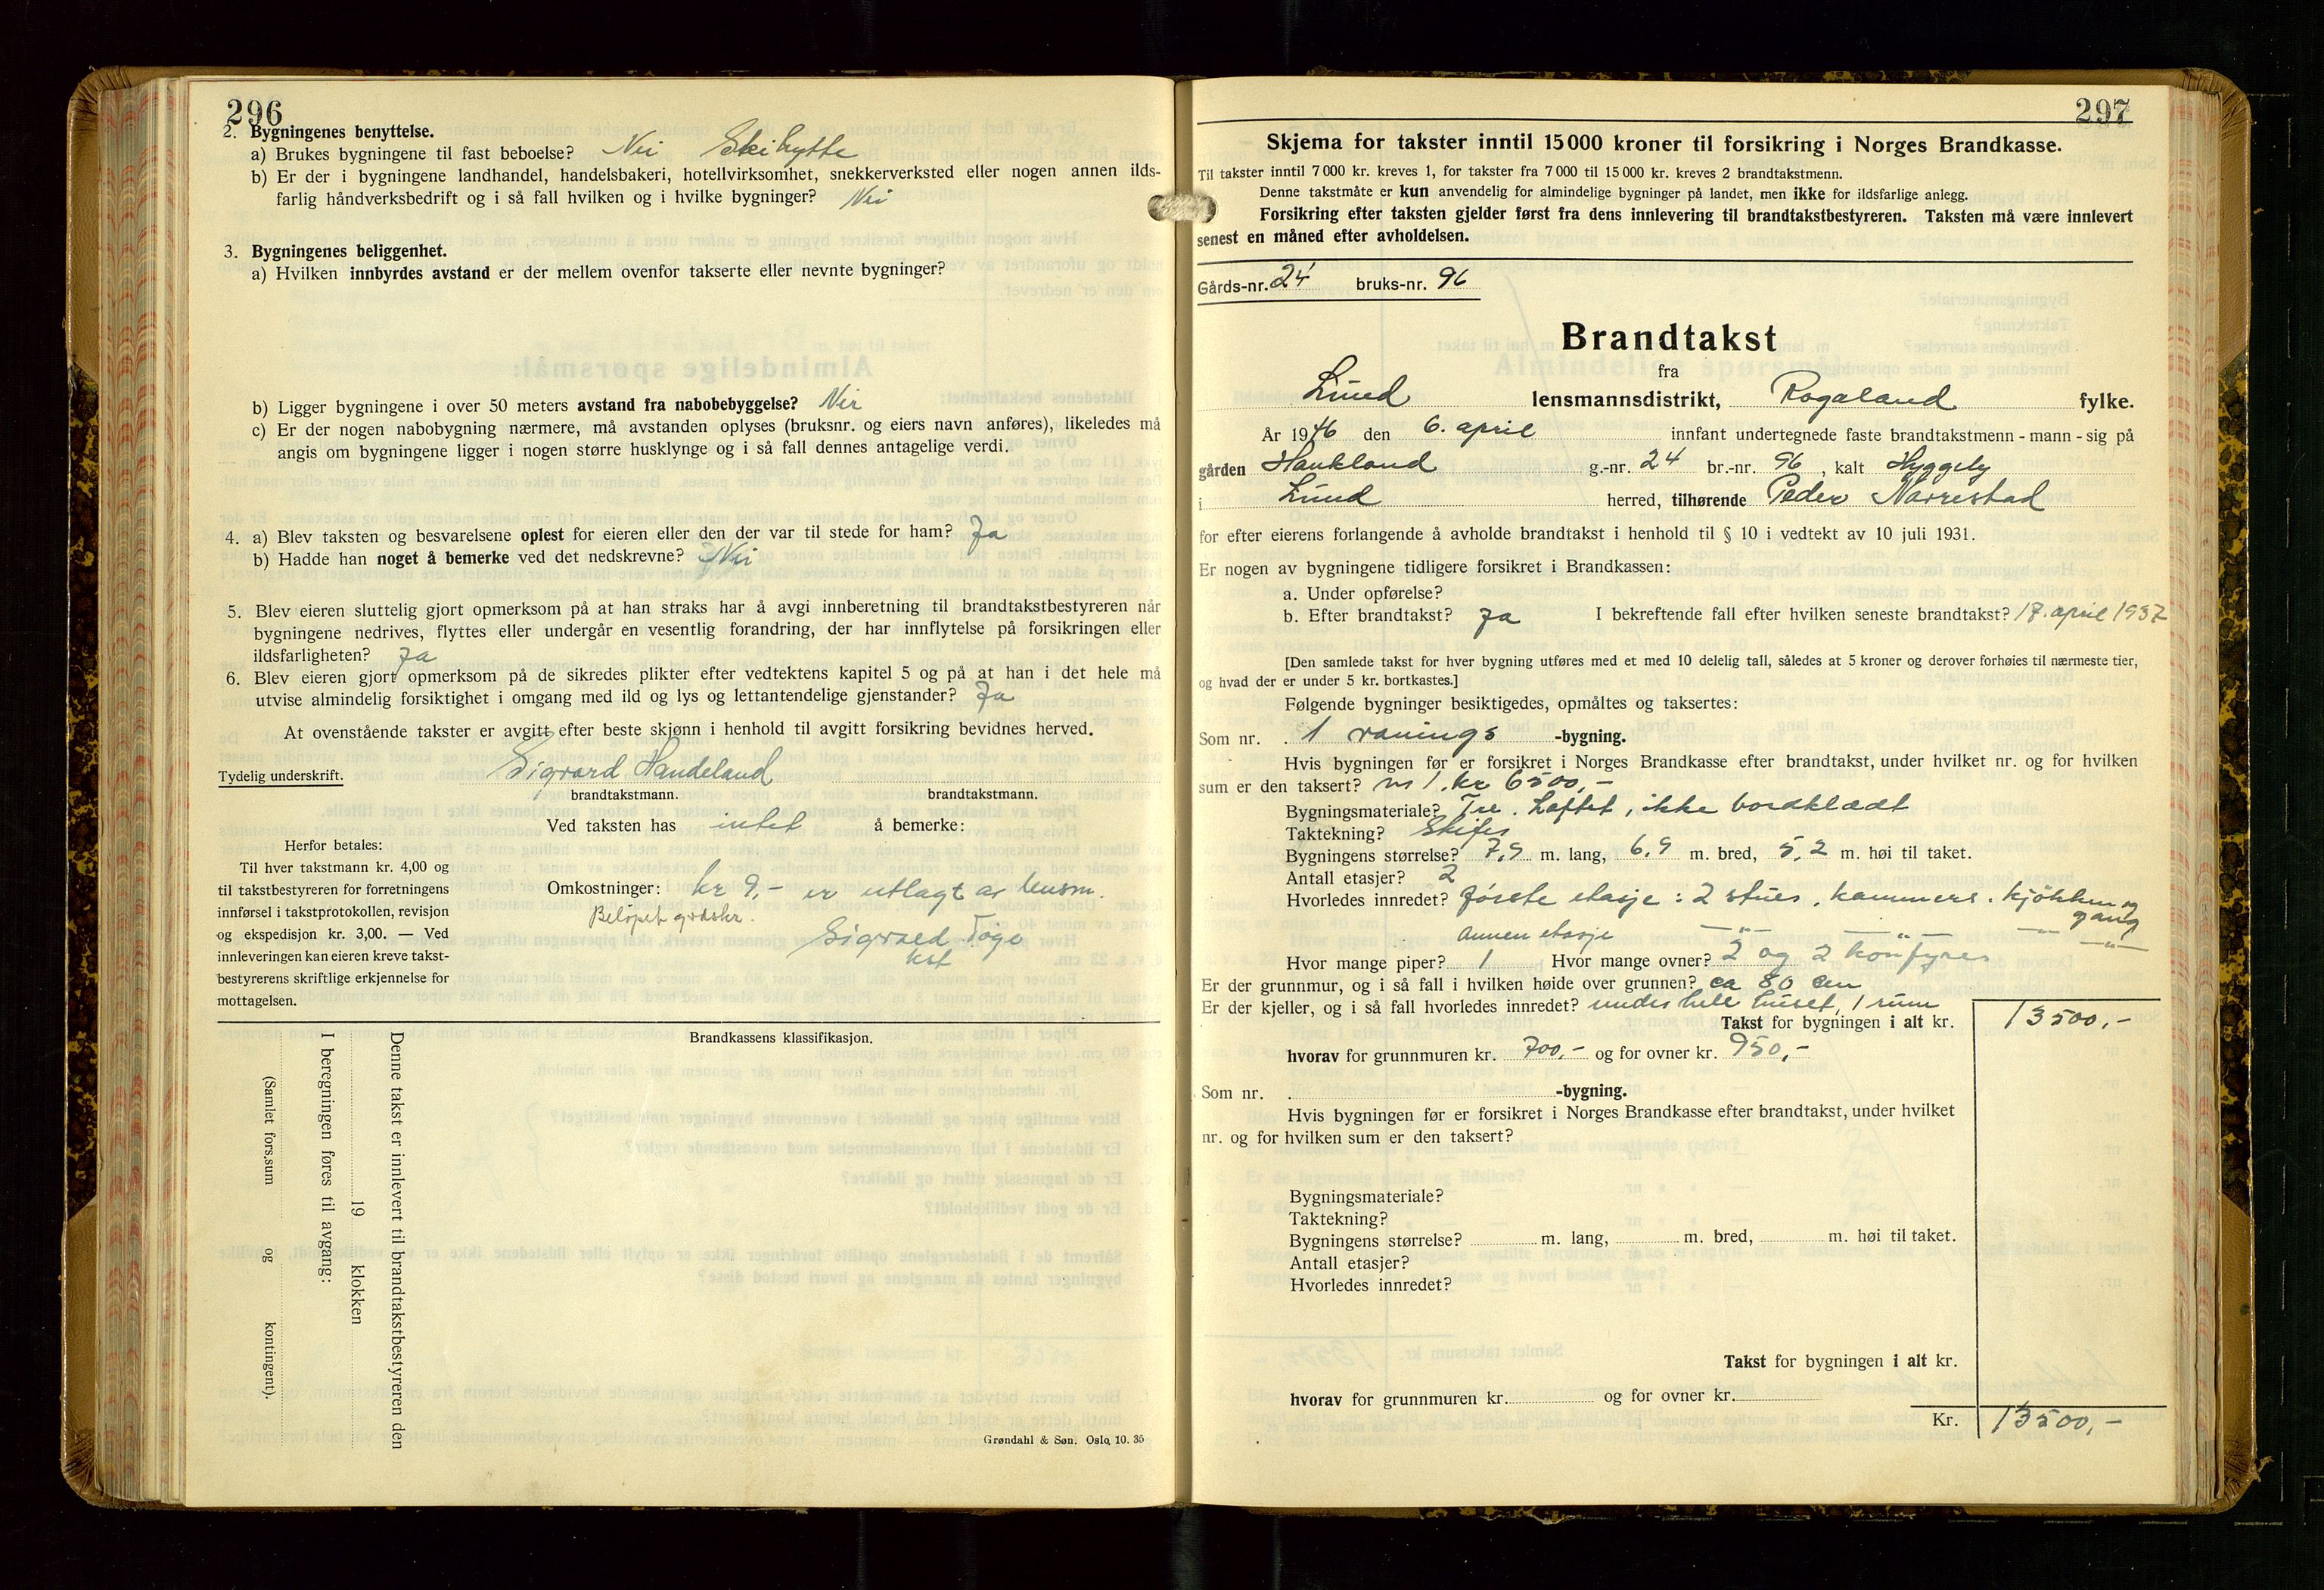 296
2. Bygningenes benyttelse.
a) Brukes bygningene til fast beboelse? Nei Skihytte
b) Er der i bygningene landhandel, handelsbakeri, hotellvirksomhet, snekkerverksted eller nogen annen ilds-
farlig håndverksbedrift og i så fall hvilken og i hvilke bygninger? Nei
3. Bygningenes beliggenhet.
a) Hvilken innbyrdes avstand er der mellem ovenfor takserte eller nevnte bygninger?
b) Ligger bygningene i over 50 meters avstand fra nabobebyggelse? Nei
c) Er der nogen nabobygning nærmere, må avstanden oplyses (bruksnr. og eiers navn anføres), likeledes må
angis om bygningene ligger i nogen større husklynge og i så fall dennes antagelige verdi.
4. a) Blev taksten og besvarelsene oplest for eieren eller den der var til stede for ham? Ja
b) Hadde han noget å bemerke ved det nedskrevne? Nei
5. Blev eieren sluttelig gjort opmerksom på at han straks har å avgi innberetning til brandtakstbestyreren når
bygningene nedrives, flyttes eller undergår en vesentlig forandring, der har innflytelse på forsikringen eller
ildsfarligheten? Ja
6. Blev eieren gjort opmerksom på de sikredes plikter efter vedtektens kapitel 5 og på at han i det hele må
utvise almindelig forsiktighet i omgang med ild og lys og lettantendelige gjenstander? Ja
At ovenstående takster er avgitt efter beste skjønn i henhold til avgitt forsikring bevidnes herved.
Tydelig underskrift. Sigvard Handeland
brandtakstmann. brandtakstmann.
Ved taksten has intet å bemerke:
Herfor betales:
Til hver takstmann kr. 4,00 og
til takstbestyreren for forretningens
innførsel i takstprotokollen, revisjon
og ekspedisjon kr. 3,00. — Ved
innleveringen kan eieren kreve takst-
bestyrerens skriftlige erkjennelse for
mottagelsen.
Omkostninger: kr 9,- er utlagt av lensm.
Beløpet
Sigvald
kst
Brandkassens klassifikasjon.
Denne takst er innlevert til brandtakstbestyreren den
19 klokken
I beregningen føres til avgang:
(Samlet fors.sum og kontingent).
Grøndahl & Søn. Oslo. 10. 35
297
Skjema for takster inntil 15 000 kroner til forsikring i Norges Brandkasse.
Til takster inntil 7 000 kr. kreves 1, for takster fra 7 000 til 15 000 kr. kreves 2 brandtakstmenn.
Denne takstmåte er kun anvendelig for almindelige bygninger på landet, men ikke for ildsfarlige anlegg.
Forsikring efter taksten gjelder først fra dens innlevering til brandtakstbestyreren. Taksten må være innlevert
senest en måned efter avholdelsen.
Gårds-nr. 24 bruks-nr. 96
Brandtakst
fra
Lund lensmannsdistrikt, Rogaland fylke.
År 1946 den 6. april innfant undertegnede faste brandtakstmenn - mann - sig på
gården Haukland g.-nr. 24 br.-nr. 96, kalt Hyggely
i Lund herred, tilhørende Peder Nårrestad
for efter eierens forlangende å avholde brandtakst i henhold til § 10 i vedtekt av 10 juli 1931.
Er nogen av bygningene tidligere forsikret i Brandkassen:
a. Under opførelse?
b. Efter brandtakst? Ja I bekreftende fall efter hvilken seneste brandtakst? 17. april 1937
[Den samlede takst for hver bygning utføres med et med 10 delelig tall, således at 5 kroner og derover forhøies til nærmeste tier,
og hvad der er under 5 kr. bortkastes.]
Følgende bygninger besiktigedes, opmåltes og taksertes:
Som nr. 1 vånings -bygning.
Hvis bygningen før er forsikret i Norges Brandkasse efter brandtakst, under hvilket nr. og for hvilken
sum er den taksert? nr 1. kr 6500,-
Bygningsmateriale? Tre. Loftet, ikke bordklædt
Taktekning? Skifer
Bygningens størrelse? 7,5 m. lang, 6,5 m. bred, 5,2 m. høi til taket.
Antall etasjer? 2
Hvorledes innredet? første etasje: 2 stuer, kammers. kjøkken og
gang
Annen etasje —"— —"— —"— —"—
Hvor mange piper? 1 Hvor mange ovner? 2 og 2 komfyrer
Er der grunnmur, og i så fall i hvilken høide over grunnen? ca 80 cm
Er der kjeller, og i så fall hvorledes innredet? under hele huset, 1 rum
Takst for bygningen i alt kr. 13500,-
hvorav for grunnmuren kr. 700,- og for ovner kr. 950,-
Som nr. -bygning.
Hvis bygningen før er forsikret i Norges Brandkasse efter brandtakst, under hvilket
nr. og for hvilken sum er den taksert?
Bygningsmateriale?
Taktekning?
Bygningens størrelse? m. lang, m. bred, m. høi til taket.
Antall etasjer?
Hvorledes innredet?
Takst for bygningen i alt kr.
hvorav for grunnmuren kr. og for ovner kr.
Kr. 13500,-